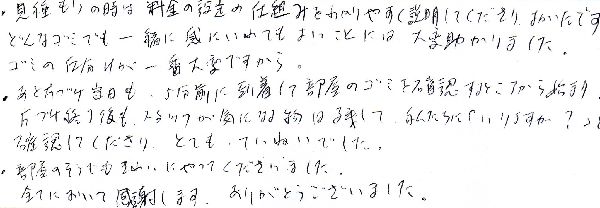 ・見積もりの時は 料金の設定の仕組みをわかりやすく説明してくださり、よかったです
どんなゴミでも一緒に袋にいれてもよいことには 大変助かりました。
ゴミの仕分けが一番大変ですから。
・あとかたづけ当日も、5分前に到着して部屋のゴミを確認するところから始まり
片づけ終了後も、スタッフが気になる物は残して、私たちに「いりますか？」と
確認してくださり、とても、ていねいでした。
・部屋のそうじもきれいにやってくださいました。
全てにおいて感謝します。ありがとうございました。